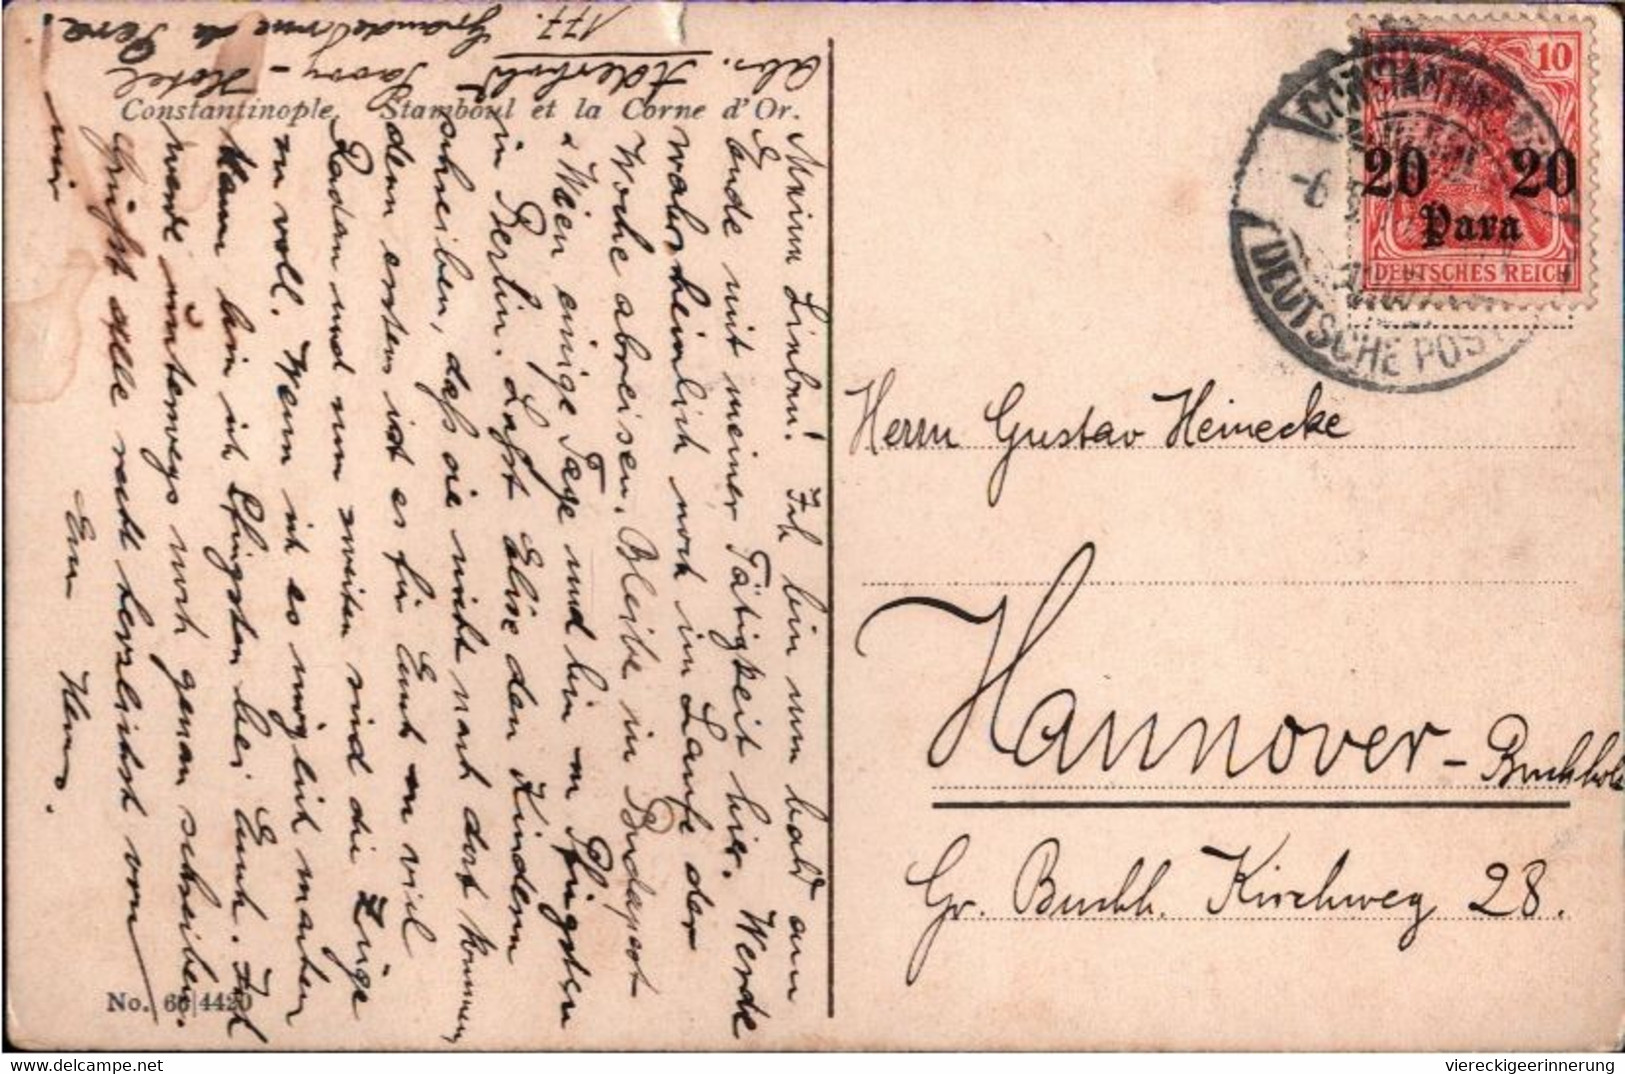 Constantinople. Stamboul et la Corne d'Or.
Abs. Savoy - Hotel
177. Grande rue de Pera.
Meine Lieben! Ich bin nun bald am
Ende mit meiner Tätigkeit hier. Werde
wahrscheinlich noch im Laufe der
Woche abreisen. Bleibe in Budapest
& Wien einige Tage und bin zu Pfingsten
in Berlin. Lasst Elise den Kindern
schreiben, dass sie nicht nach dort kommen,
denn erstens ist es für Euch zu viel
Radau und zum zweiten sind die Züge
zu voll. Wenn ich es möglich machen
kann bin ich Pfingsten bei Euch. Ich
werde unterwegs noch genau schreiben.
Grüsst alle recht herzlichst von
mir
Euer
No. 66|4420
10
CONSTANTINOPEL
20 20
Para
DEUTSCHES REICH
-6
DEUTSCHE POST
Herrn Gustav Heinecke
Hannover - Buchholz
Gr. Buchh. Kirchweg 28.
viereckigeerinnerung